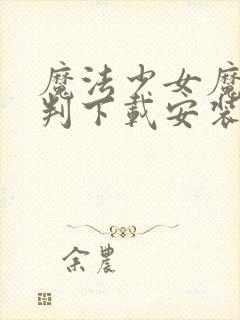 魔法少女魔
判下载安装
余農